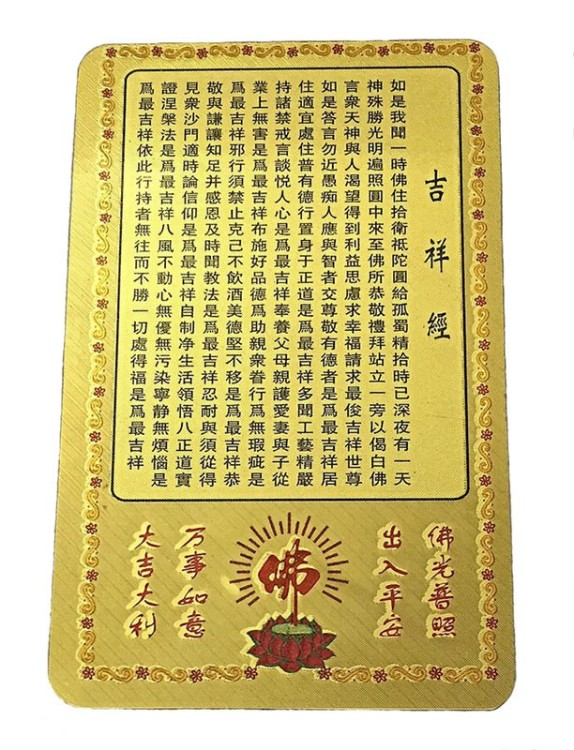 吉祥經
如是我聞一時佛住拾衛祗陀圓給孤蜀精拾時已深夜有一天
神殊勝光明遍照圓中來至佛所恭敬禮拜站立一旁以偈白佛
言衆天神與人渴望得到利益思慮求幸福請求最俊吉祥世尊
如是答言勿近愚痴人應與智者交尊敬有德者是爲最吉祥居
住適宜處住普有德行置身于正道是爲最吉祥多聞工藝精嚴
持諸禁戒言談悦人心是爲最吉祥奉養父母親護愛妻與子從
業上無害是爲最吉祥布施好品德爲助親衆眷行爲無瑕疵是
爲最吉祥邪行須禁止克己不飲酒美德堅不移是爲最吉祥恭
敬與謙讓知足并感恩及時聞教法是爲最吉祥忍耐與須從得
見衆沙門適時論信仰是爲最吉祥自制净生活領悟八正道實
證涅槃法是爲最吉祥八風不動心無優無污染寧静無煩惱是
爲最吉祥依此行持者無往而不勝一切處得福是爲最吉祥
佛光普照
出入平安
佛
万事如意
大吉大利